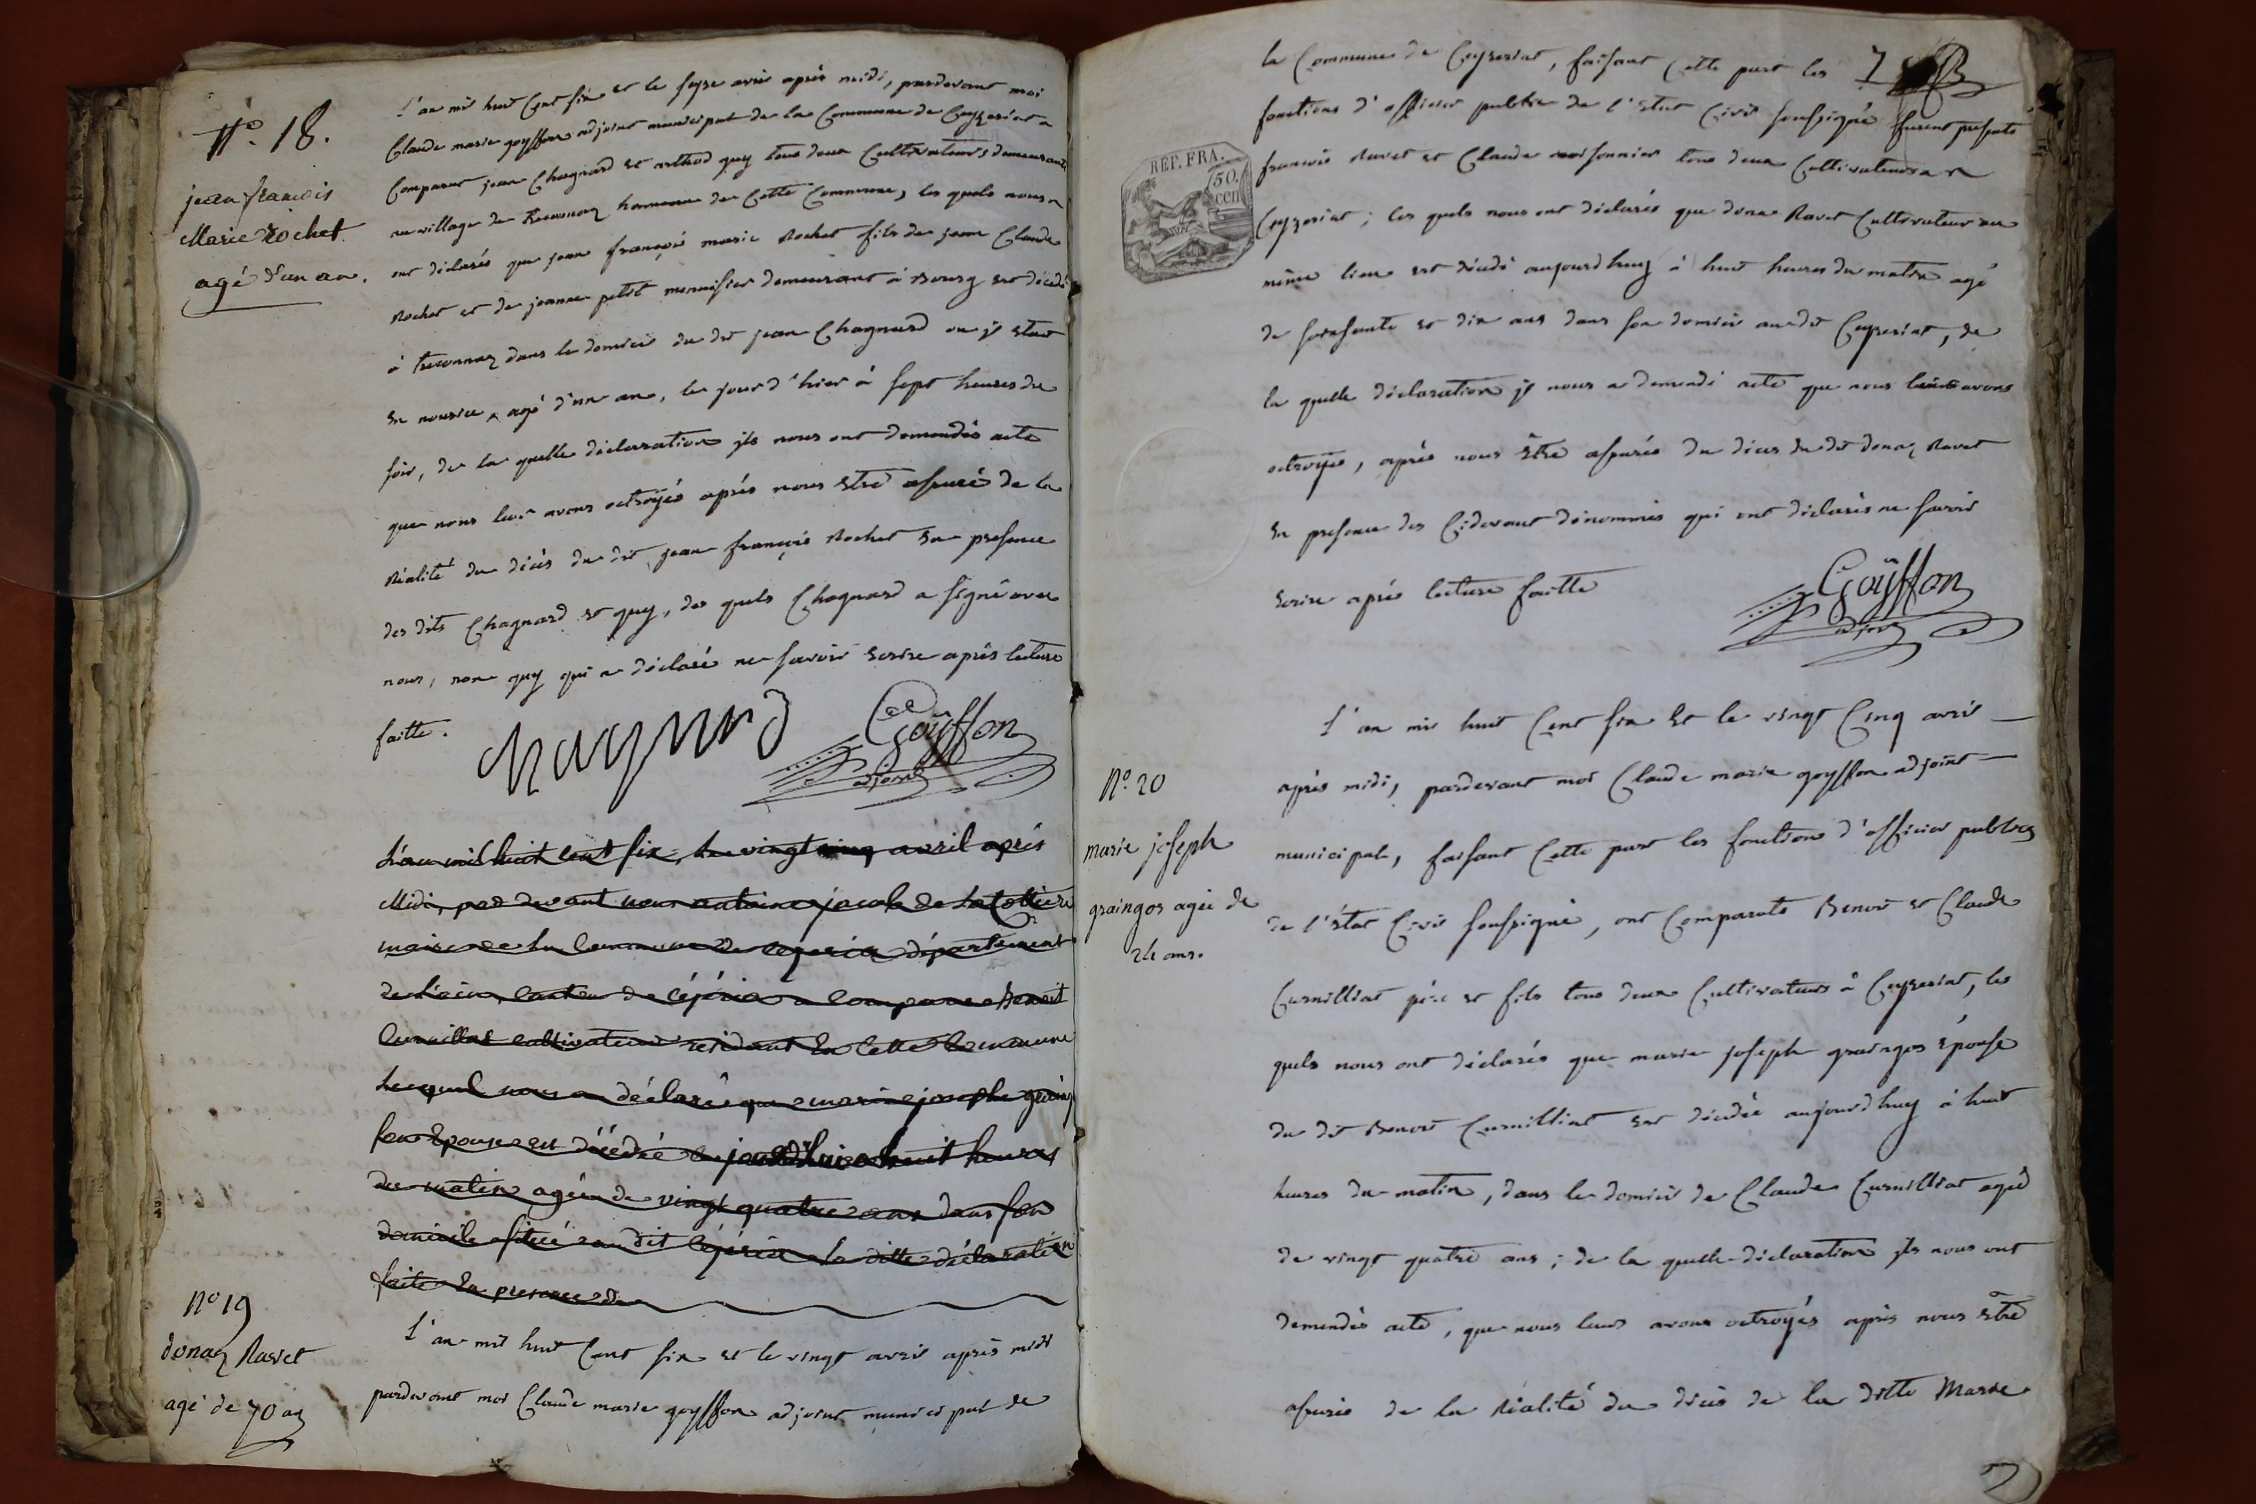 N.º 18.
jean françois
Marie Rochet
agé d'un an.
L'an mil huit Cent six et le seize avril après midi, pardevant moi
Claude marie goyffon adjoint municipal de la Commune de Ceyzeriat a
Comparut jean Chagnard et arthod guy tous deux Cultivateurs demeurants
au village de hameau de Cette Commune, les quels nous
ont déclarés que jean françois marie Rochet fils de jean Claude
Rochet et de jeanne petit menuisier demeurant à Bourg est décédé
à treconnaz dans le domicil du dit jean Chagnard ou jl etait
en nourice, agé d'un an, le jour d'hier à sept heures du
soir, de la quelle déclaration jls nous ont demandés acte
que nous leur avons octroyés après nous être assuré de la
Réalité du décès du dit jean françois Rochet En presence
des dits Chagnard et guy, des quels Chagnard a signé avec
nous, non guy qui a déclaré ne savoir Ecrire après lecture
faitte.
Chagnard Goÿffon
adjoint
L'an mil huit cent six, le vingt cinq avril après
Midi, par devant nous antoine jacob de la Cottiere
maire de la Commune de département
de l'ain, canton de a comparu Benoit
Curnillat cultivateur résidant en cette commune
lequel nous a déclaré que marie josephe
son Epouse est décédée à huit heures
du matin agée de vingt quatre ans dans son
domicile situé au dit la ditte déclaration
faite en presence de
Nº 19
donaz Ravet
agé de 70 as
L'an mil huit Cent six et le vingt avril après midi
pardevant moi Claude marie goyffon adjoint municipal de
la Commune de Ceyzeriat, faisant Cette part les 7
fonctions d'officier public de l'Etat Civil soussigné furent présents
françois Ravet et Claude moissonnier tous deux Cultivateurs a
Ceyzeriat; les quels nous ont déclarés que donaz Ravet Cultivateur au
même lieu est décédé aujourdhuy à huit heures du matin agé
de soixante et dix ans dans son domicil au dit Ceyzeriat, de
la quelle déclaration jl nous a demandé acte que nous avons
octroyés, après nous être assurés du décès du dit donaz Ravet
En presence des Cidevant dénommés qui ont déclarés ne savoir
Ecrire après lecture faitte
Goÿffon
adjoint
RÉP. FRA.
50.
cen
Nº. 20
marie joseph
graingos agée de
24 ans.
L'an mil huit Cent six Et le vingt Cinq avril
après midi, pardevant moi Claude marie goyffon adjoint
municipal, faisant Cette part les fonctions d'officier public
de l'état Civil soussigné, ont Comparuts Benoit et Claude
Curnilliat père et fils tous deux Cultivateurs à Ceyzeriat, les
quels nous ont déclarés que marie joseph graingos épouse
du dit Benoit Curnilliat est décédée aujourdhuy à huit
heures du matin, dans le domicil de Claude Curnilliat agée
de vingt quatre ans; de la quelle déclaration jls nous ont
demandés acte, que nous leurs avons octroyés après nous être
assurés de la Réalité du décès de la ditte Marie